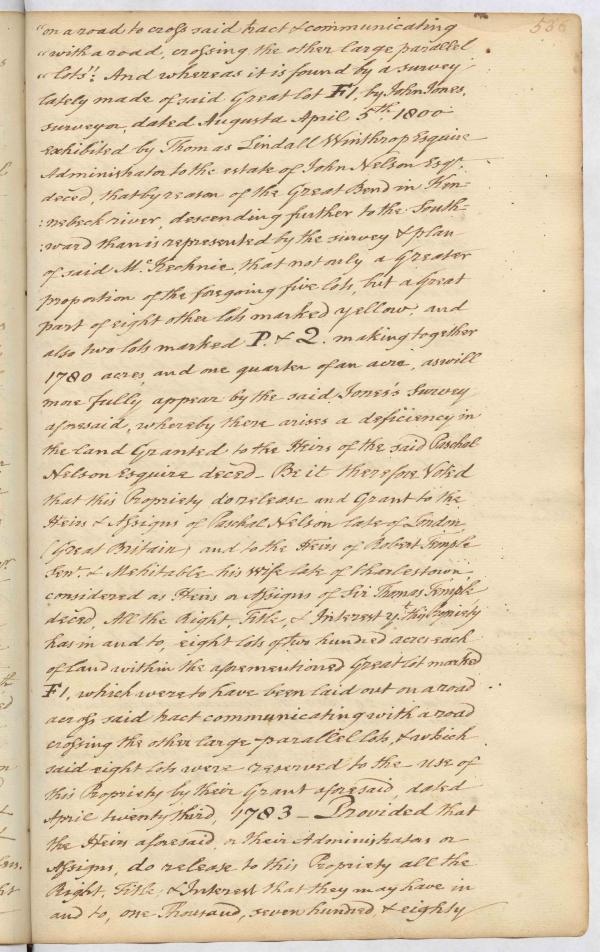 536
"on a road to cross said tract & communicating
"with a road, crossing the other large parallel
"lots": And whereas it is found by a survey
lately made of said Great lot F1, by John Jones,
surveyor, dated Augusta April 5th. 1800
exhibited by Thomas Lindall Winthrop Esquire
Administrator to the estate of John Nelson Esqr.
deced, that by reason of the Great Bend in Ken-
:nebeck river, descending further to the South-
:ward than is represented by the survey & plan
of said Mc.Kechnie, that not only a Greater
proportion of the foregoing five lots, but a Great
part of eight other lots marked yellow, and
also two lots marked P. & Q. making together
1780 acres, and one quarter of an acre, as will
more fully appear by the said Jones's Survey
aforesaid, whereby there arises a deficiency in
the land Granted to the Heirs of the said Paschal
Nelson Esquire deced – Be it therefore Voted
that this Propriety do release and Grant to the
Heirs & Assigns of Paschal Nelson late of London
(Great Britain) and to the Heirs of Robert Temple
Senr. & Mehitable his Wife late of Charlestown,
considered as Heirs or Assigns of Sir Thomas Temple
deced, All the Right, Title, & Interest yt. this Propriety
has in and to, eight lots of two hundred acres each
of land within the aforementioned Great lot marked
F1, which were to have been laid out on a road
across said tract communicating with a road
crossing the other large parallel lots, & which
said eight lots were reserved to the use of
this Propriety by their Grant aforesaid, dated
April twenty third, 1783 – Provided that
the Heirs aforesaid, or their Administrators or
Assigns, do release to this Propriety all the
Right, Title, & Interest that they may have in
and to, one Thousand, seven hundred, & eighty